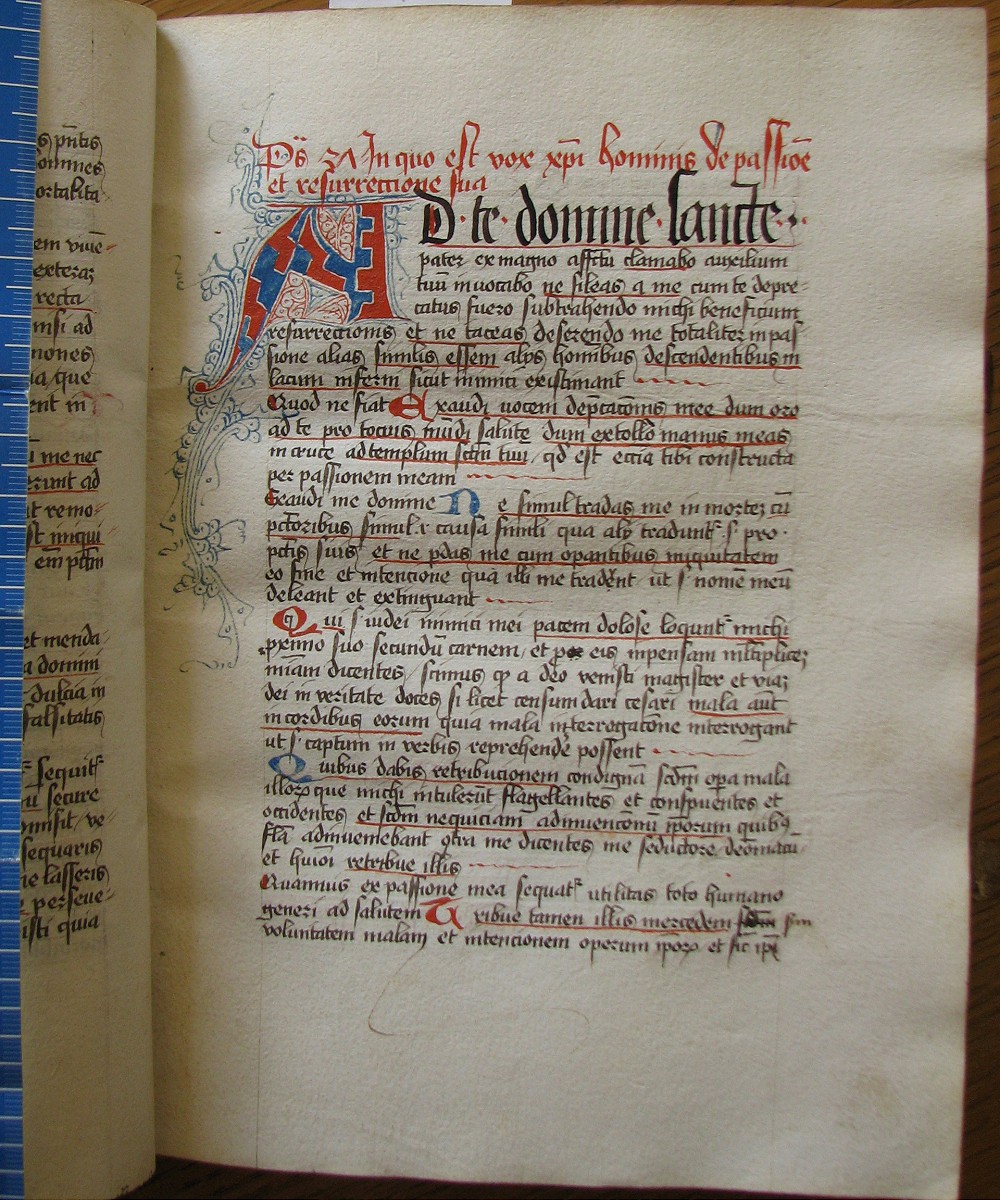 s p̄ntis
omnes
ortalita
em viuē
exteraꝝ
recta
nisi ad
nones
ia que
ent in
ū me nec
erunt ad
ut remo
st iniqui
em pctm̄
et menda
a domini
dulcia in
falsitatis
sequitᵉ
ū secure
misit ve
sequaris
ne lasseris
perseue
isti quia
Pˢ 27 In quo est vox xp̄i hominis de passiōe
et resurrectione sua
AD · te · domine · sancte ·
pater ex magno affctu clamabo auxilium
tuū inuocabo ne sileas a me cum te depre-
catus fuero subtrahendo michi beneficium
resurrectionis et ne taceas deserendo me totaliter in pas
sione alias similis essem alijs hominibus descendentibus in
lacum inferni sicut inimici existimant
Quod ne fiat Exaudi uocem dep̄catōnis mee dum oro
ad te pro tocius mūdi salute dum extollo manus meas
in cruce ad templum sctm̄ tuū qd' est eccīa tibi constructa
per passionem meam
Exaudi me domine Ne simul tradas me in mortez cū
pctoribus simul .i. causa simili qua alij tradunt᷑ .s. pro
pctis suis et ne p̱das me cum op̱antibus iniquitatem
eo fine et intencione qua illi me tradent ut s. nomē meū
deleant et extinguant
Qui s. iudei inimici mei pacem dolose loqunt᷑ michi
px̄imo suo secundū carnem et eis inpensam ml̄tiplicez
mīam dicentes scimus ꝙ a deo venisti magister et viaꝫ
dei in veritate doces si licet censum dari cesari mala aūt
in cordibus eorum quia mala interrogatōne interrogant
ut s. captum in verbis reprehendē possent
Quibus dabis retributionem condignā scdm̄ oꝑa mala
illoꝝ que michi intulerūt flagellantes et conspuentes et
occidentes et scdm̄ nequiciam adinuencionū ip̄orum quibꝰ
flā adinueniebant ꝯtra me dicentes me seductorē
et huiōi retribue illis
Quamuis ex passione mea sequat᷑ utilitas toto humano
generi ad salutem Tribue tamen illis mercedem sm
voluntatem malam et intencionem operum ip̄oꝝ et sic ip̄i